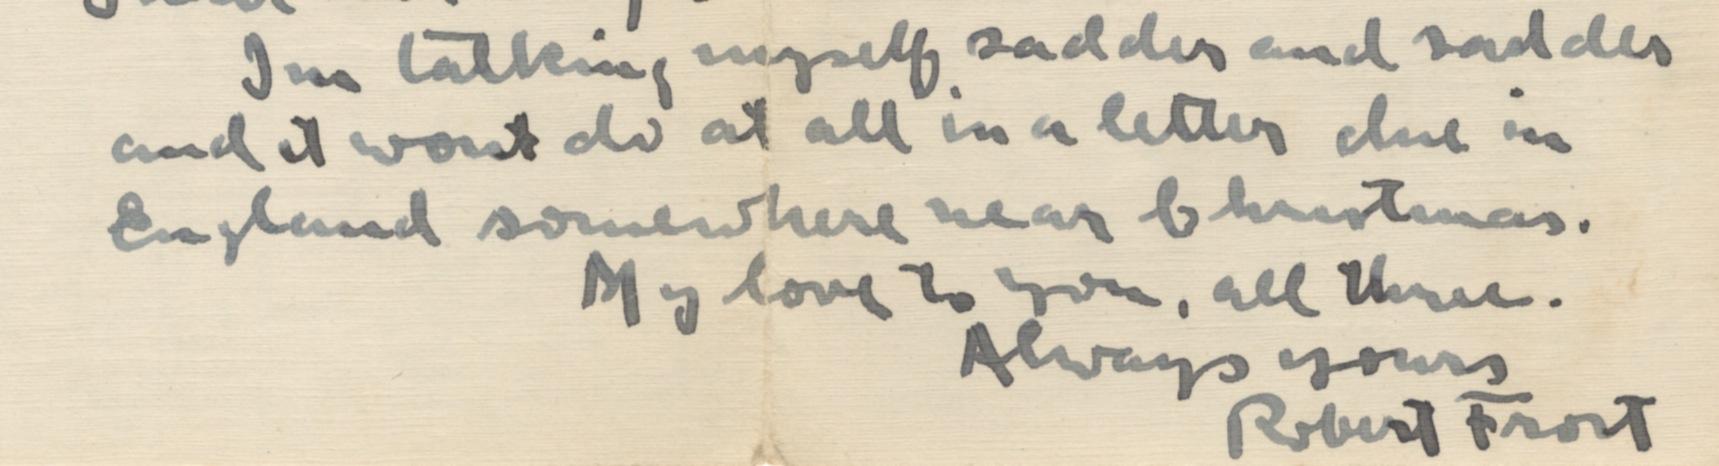 Im talking myself sadder and sadder
and it wont do at all in a letter due in
England somewhere near Christmas.
My love to you, all three.
Always yours
Robert Frost